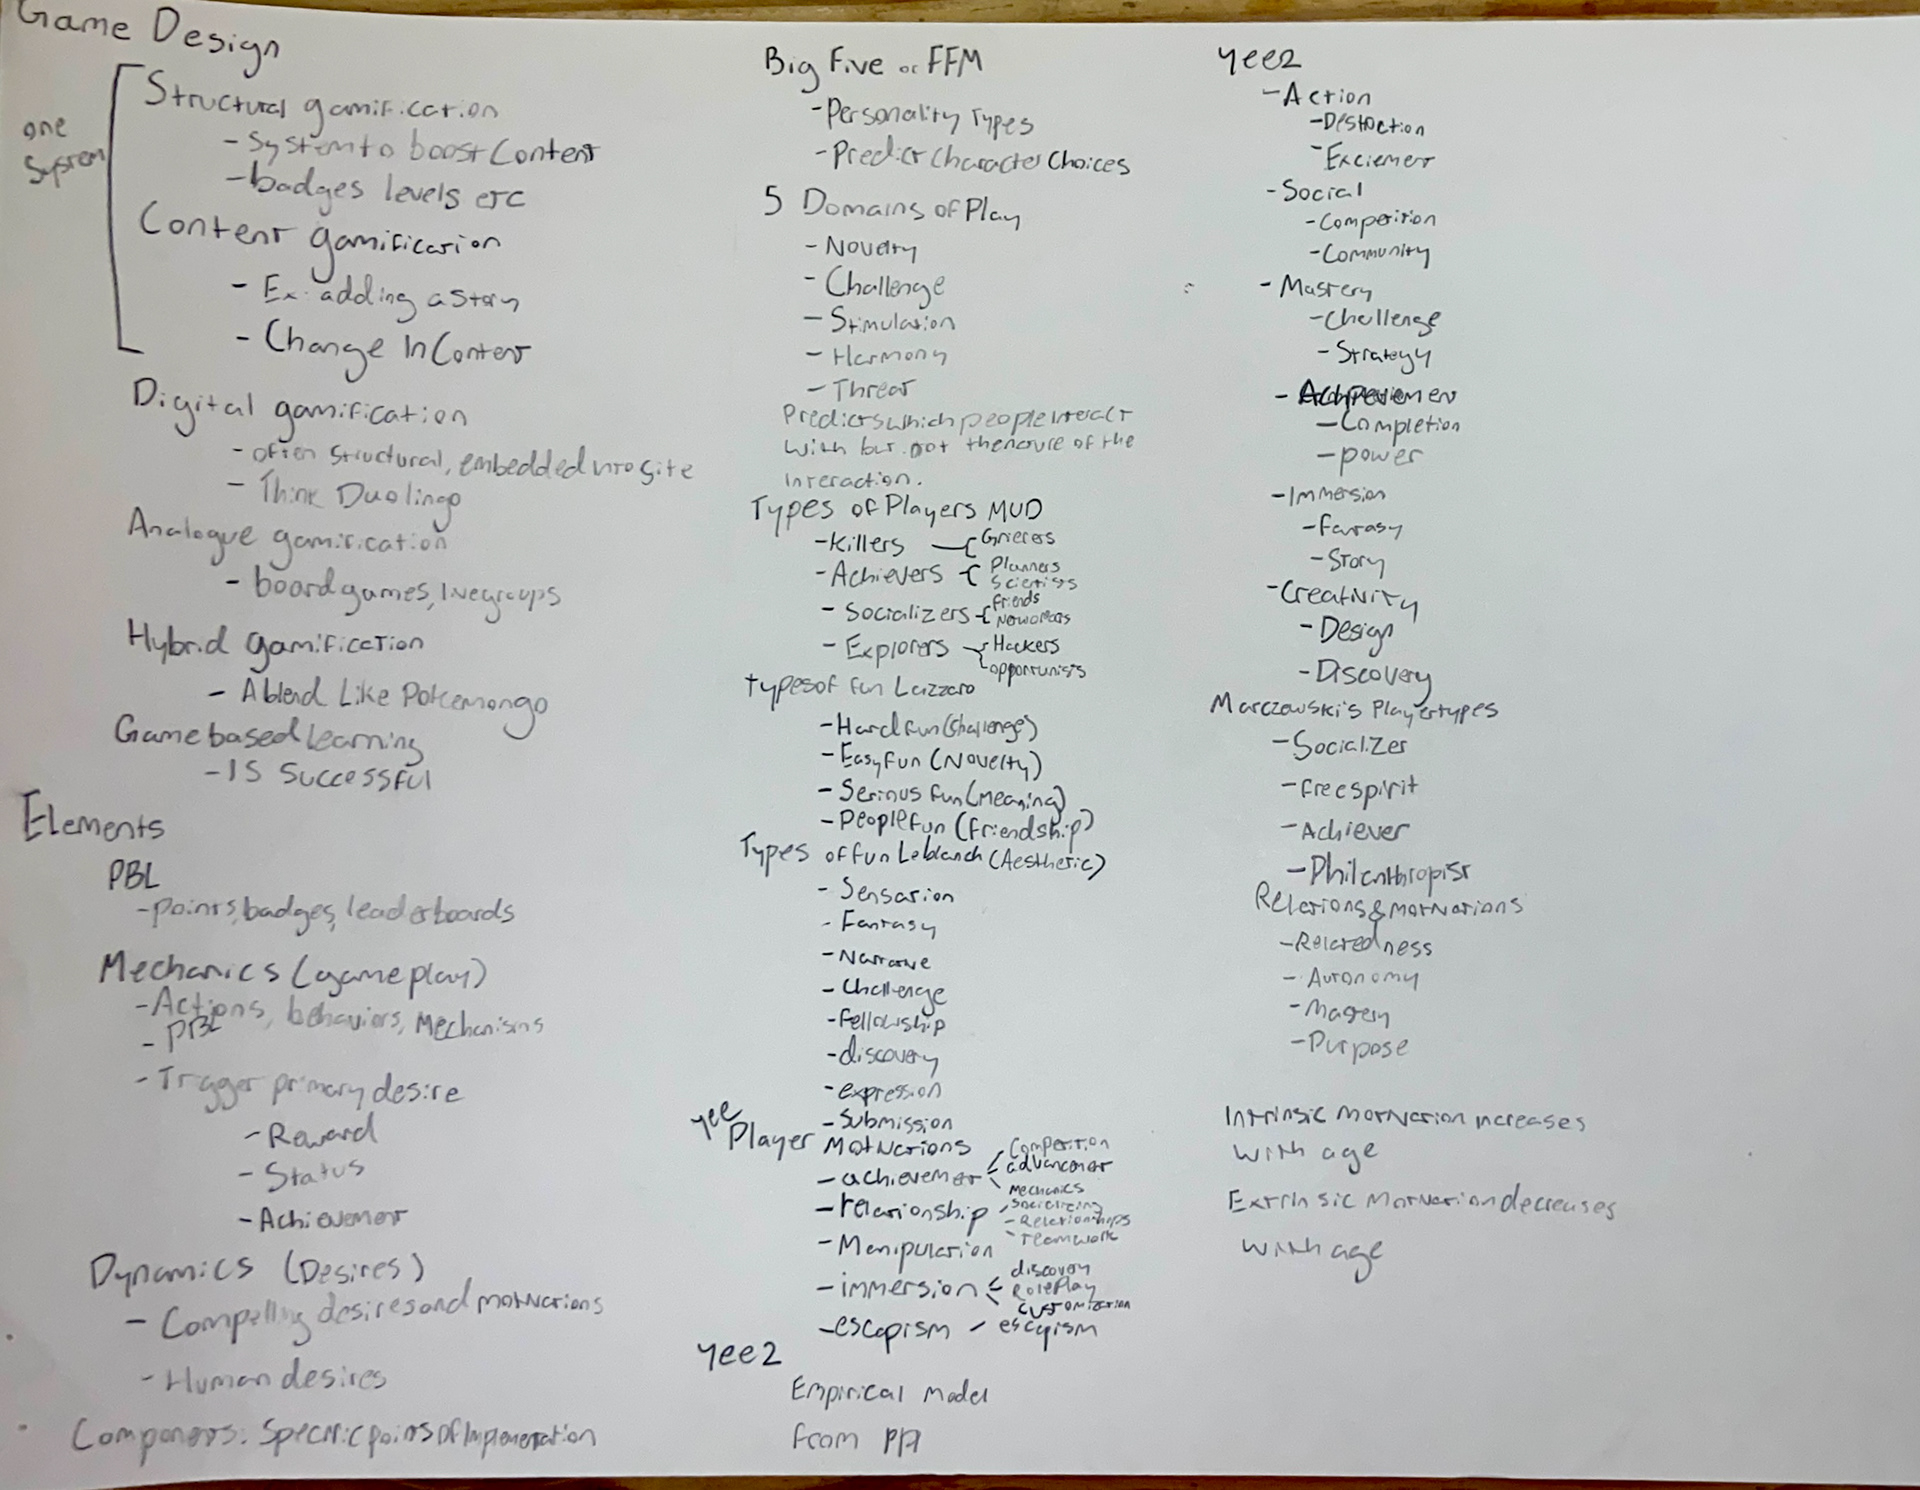 Game Design
one
System
Structural gamification
- System to boost Content
- badges levels etc
Content gamification
- Ex: adding a story
- Change In Content
Digital gamification
- often structural, embedded into site
- Think Duolingo
Analogue gamification
- board games, live groups
Hybrid gamification
- A blend Like Pokemongo
Game based learning
- IS Successful
Elements
PBL
- points, badges, leaderboards
Mechanics (gameplay)
- Actions, behaviors, Mechanisms
- PBL
- Trigger primary desire
- Reward
- Status
- Achievement
Dynamics (Desires)
- Compelling desires and motivations
- Human desires
Components: Specific points of Implementation
Big Five or FFM
- Personality Types
- Predict Character Choices
5 Domains of Play
- Novelty
- Challenge
- Stimulation
- Harmony
- Threat
Predicts which people interact
with but not the nature of the
interaction.
Types of Players MUD
- Killers { Griefers
- Achievers { Planners
Scientists
- Socializers { friends
Networkers
- Explorers { Hackers
opportunists
types of fun Lazzaro
- Hard fun (Challenge)
- Easy fun (Novelty)
- Serious fun (Meaning)
- People fun (friendship)
Types of fun Leblanch (Aesthetic)
- Sensation
- Fantasy
- Narrative
- Challenge
- fellowship
- discovery
- expression
- Submission
yee
Player Motivations
- achievement
Competition
advancement
Mechanics
- relationship
- Socializing
- Relationships
- Teamwork
- Manipulation
- immersion
discovery
RolePlay
Customization
- escapism - escapism
yee2
Empirical Model
from
yee2
- Action
- Destruction
- Exciement
- Social
- Competition
- Community
- Mastery
- Challenge
- Strategy
- Achievement
- Completion
- power
- Immersion
- Fantasy
- Story
- Creativity
- Design
- Discovery
Marczewski's Playertypes
- Socializer
- free spirit
- Achiever
- Philanthropist
Relations & motivations
- Relatedness
- Autonomy
- Mastery
- Purpose
Intrinsic motivation increases
with age
Extrinsic Motivation decreases
with age